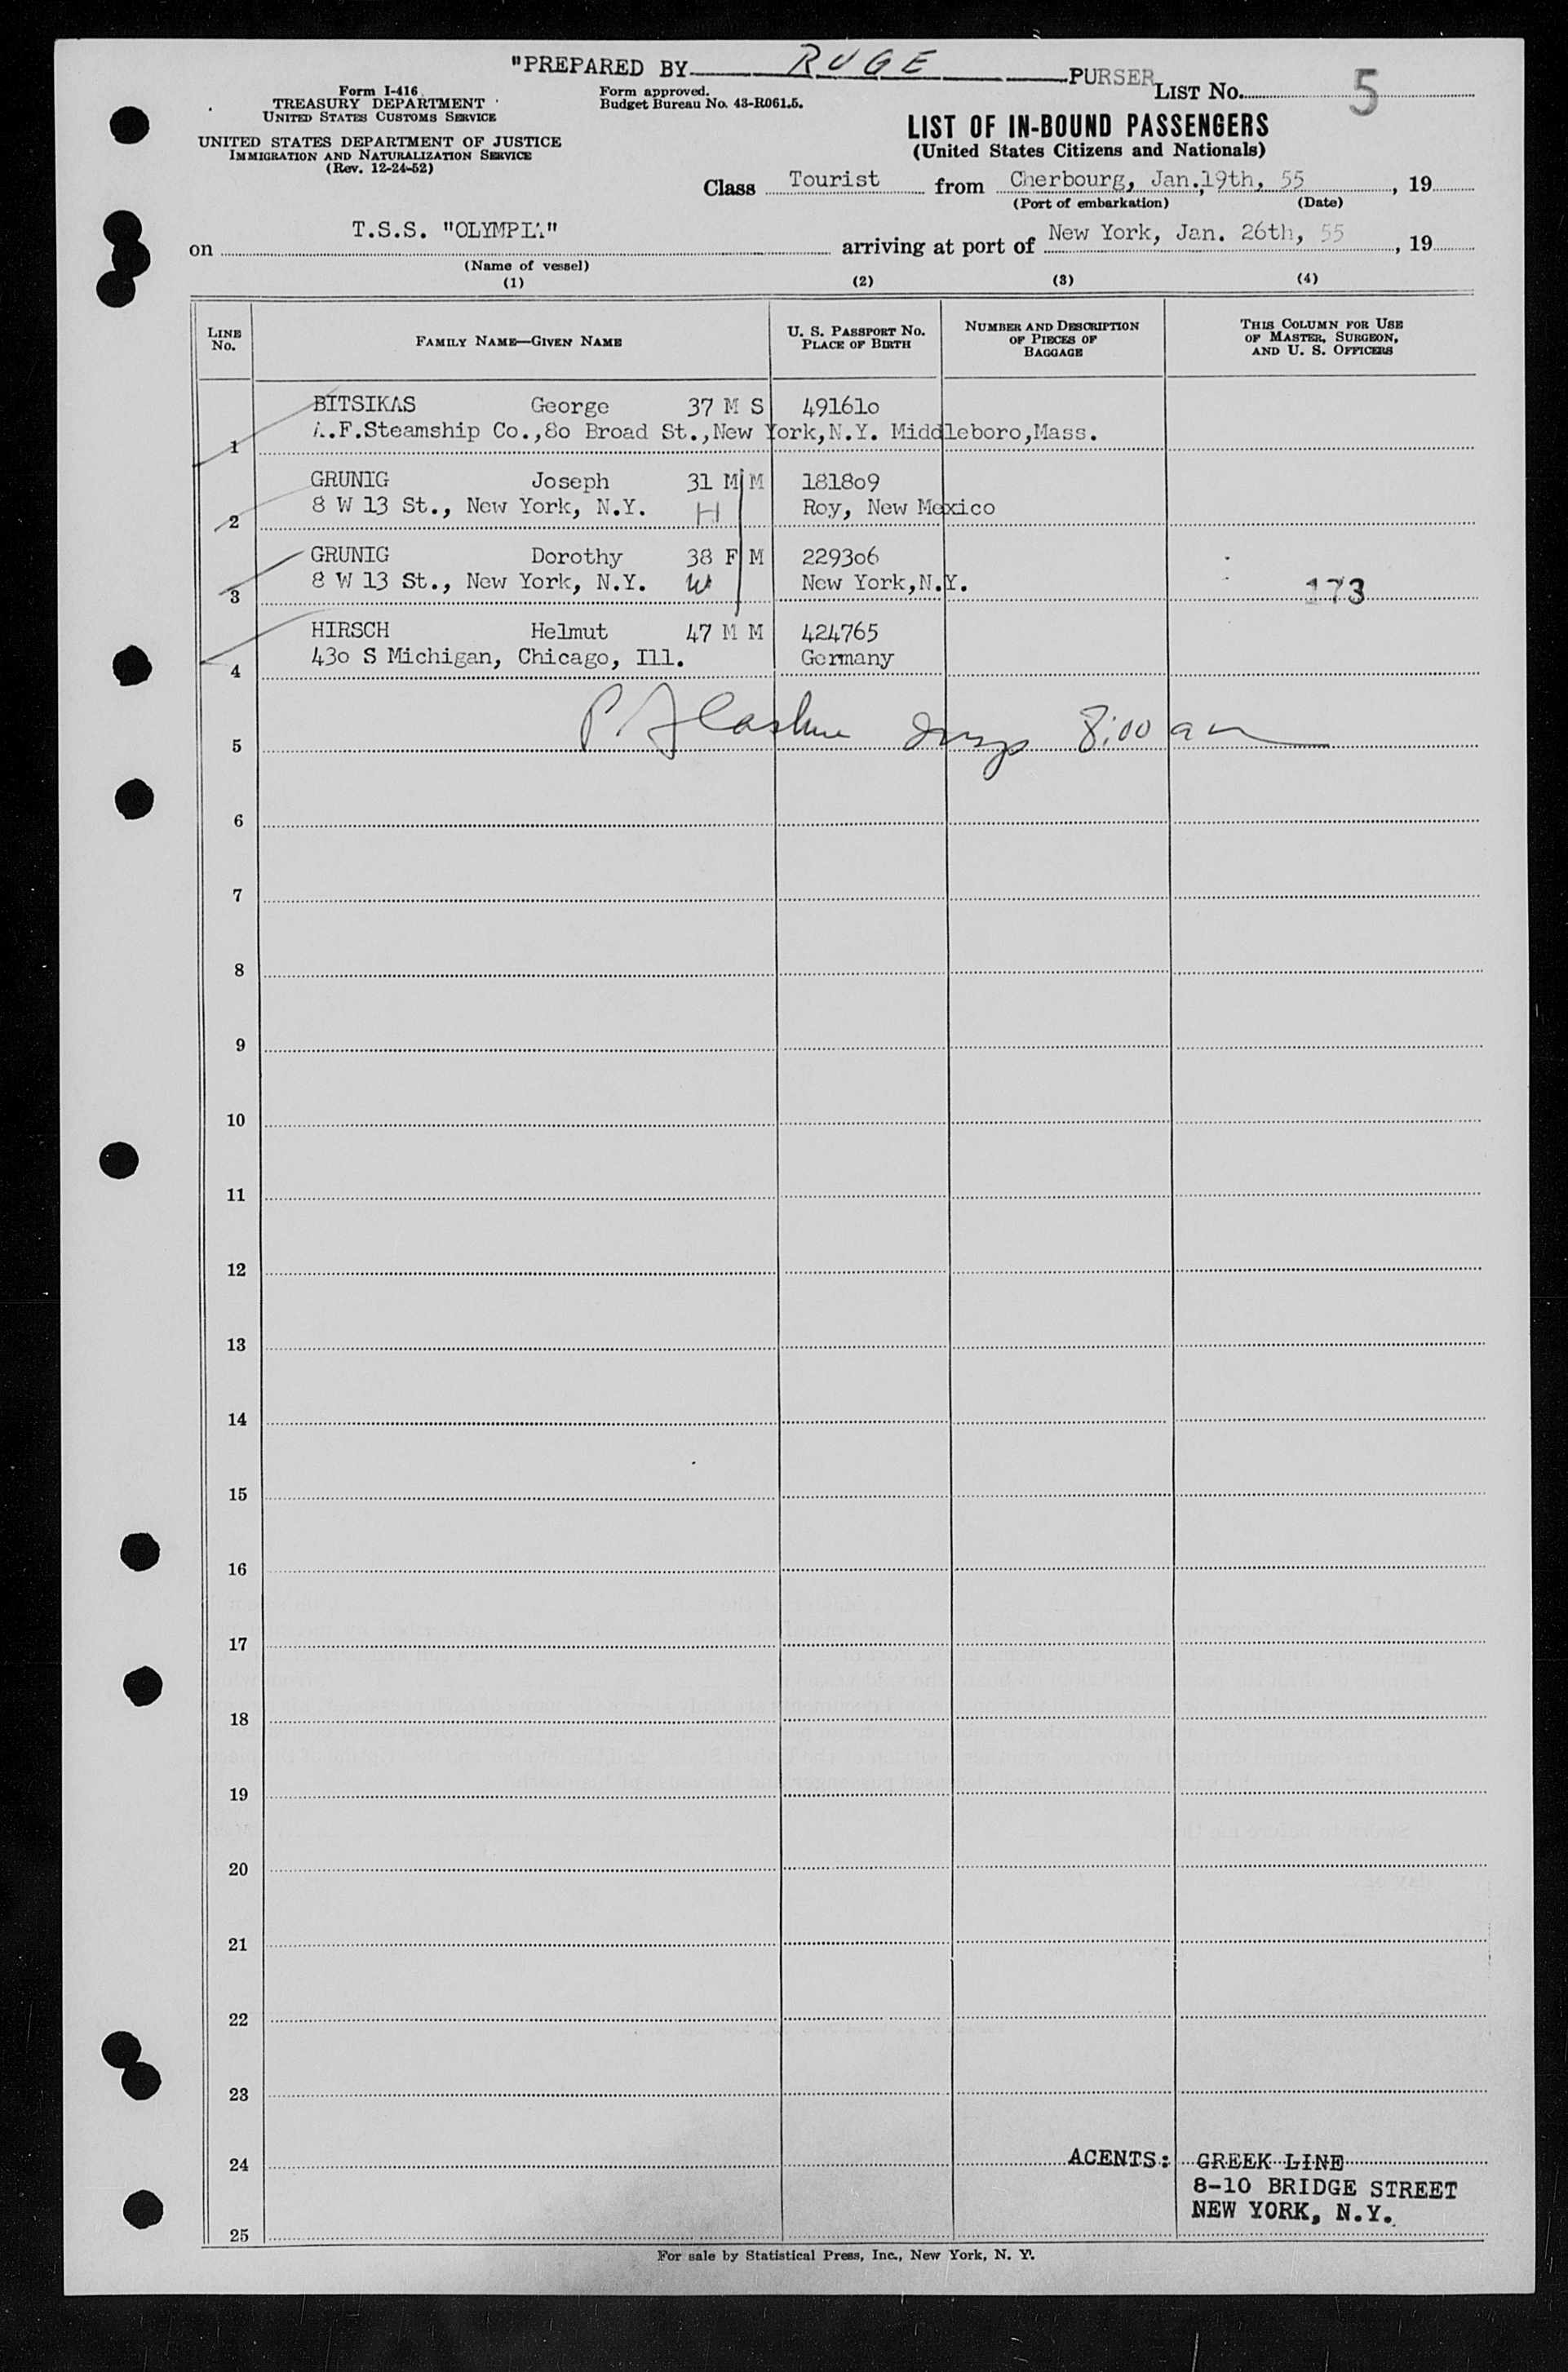 "PREPARED BY RUGE PURSER
Form I-416
TREASURY DEPARTMENT
UNITED STATES CUSTOMS SERVICE
UNITED STATES DEPARTMENT OF JUSTICE
IMMIGRATION AND NATURALIZATION SERVICE
(Rev. 12-24-52)
Form approved.
Budget Bureau No. 43-R061.5.
LIST No. 5
LIST OF IN-BOUND PASSENGERS
(United States Citizens and Nationals)
Class Tourist from Cherbourg, Jan. 19th, 55, 19
(Port of embarkation) (Date)
on T.S.S. "OLYMPIA" arriving at port of New York, Jan. 26th, 55, 19
(Name of vessel)
(1) (2) (3) (4)
LINE No. FAMILY NAME—GIVEN NAME U. S. PASSPORT No. PLACE OF BIRTH NUMBER AND DESCRIPTION OF PIECES OF BAGGAGE THIS COLUMN FOR USE OF MASTER, SURGEON, AND U. S. OFFICERS
BITSIKAS George 37 M S 49161o
1 A.F.Steamship Co.,8o Broad St.,New York,N.Y. Middleboro,Mass.
GRUNIG Joseph 31 M M 1818o9
2 8 W 13 St., New York, N.Y. H Roy, New Mexico
GRUNIG Dorothy 38 F M 2293o6
3 8 W 13 St., New York, N.Y. W New York,N.Y. 173
HIRSCH Helmut 47 M M 424765
4 43o S Michigan, Chicago, Ill. Germany
5 8:00 am
6
7
8
9
10
11
12
13
14
15
16
17
18
19
20
21
22
23
24 AGENTS: GREEK LINE
8-10 BRIDGE STREET
NEW YORK, N.Y.
25
For sale by Statistical Press, Inc., New York, N. Y.